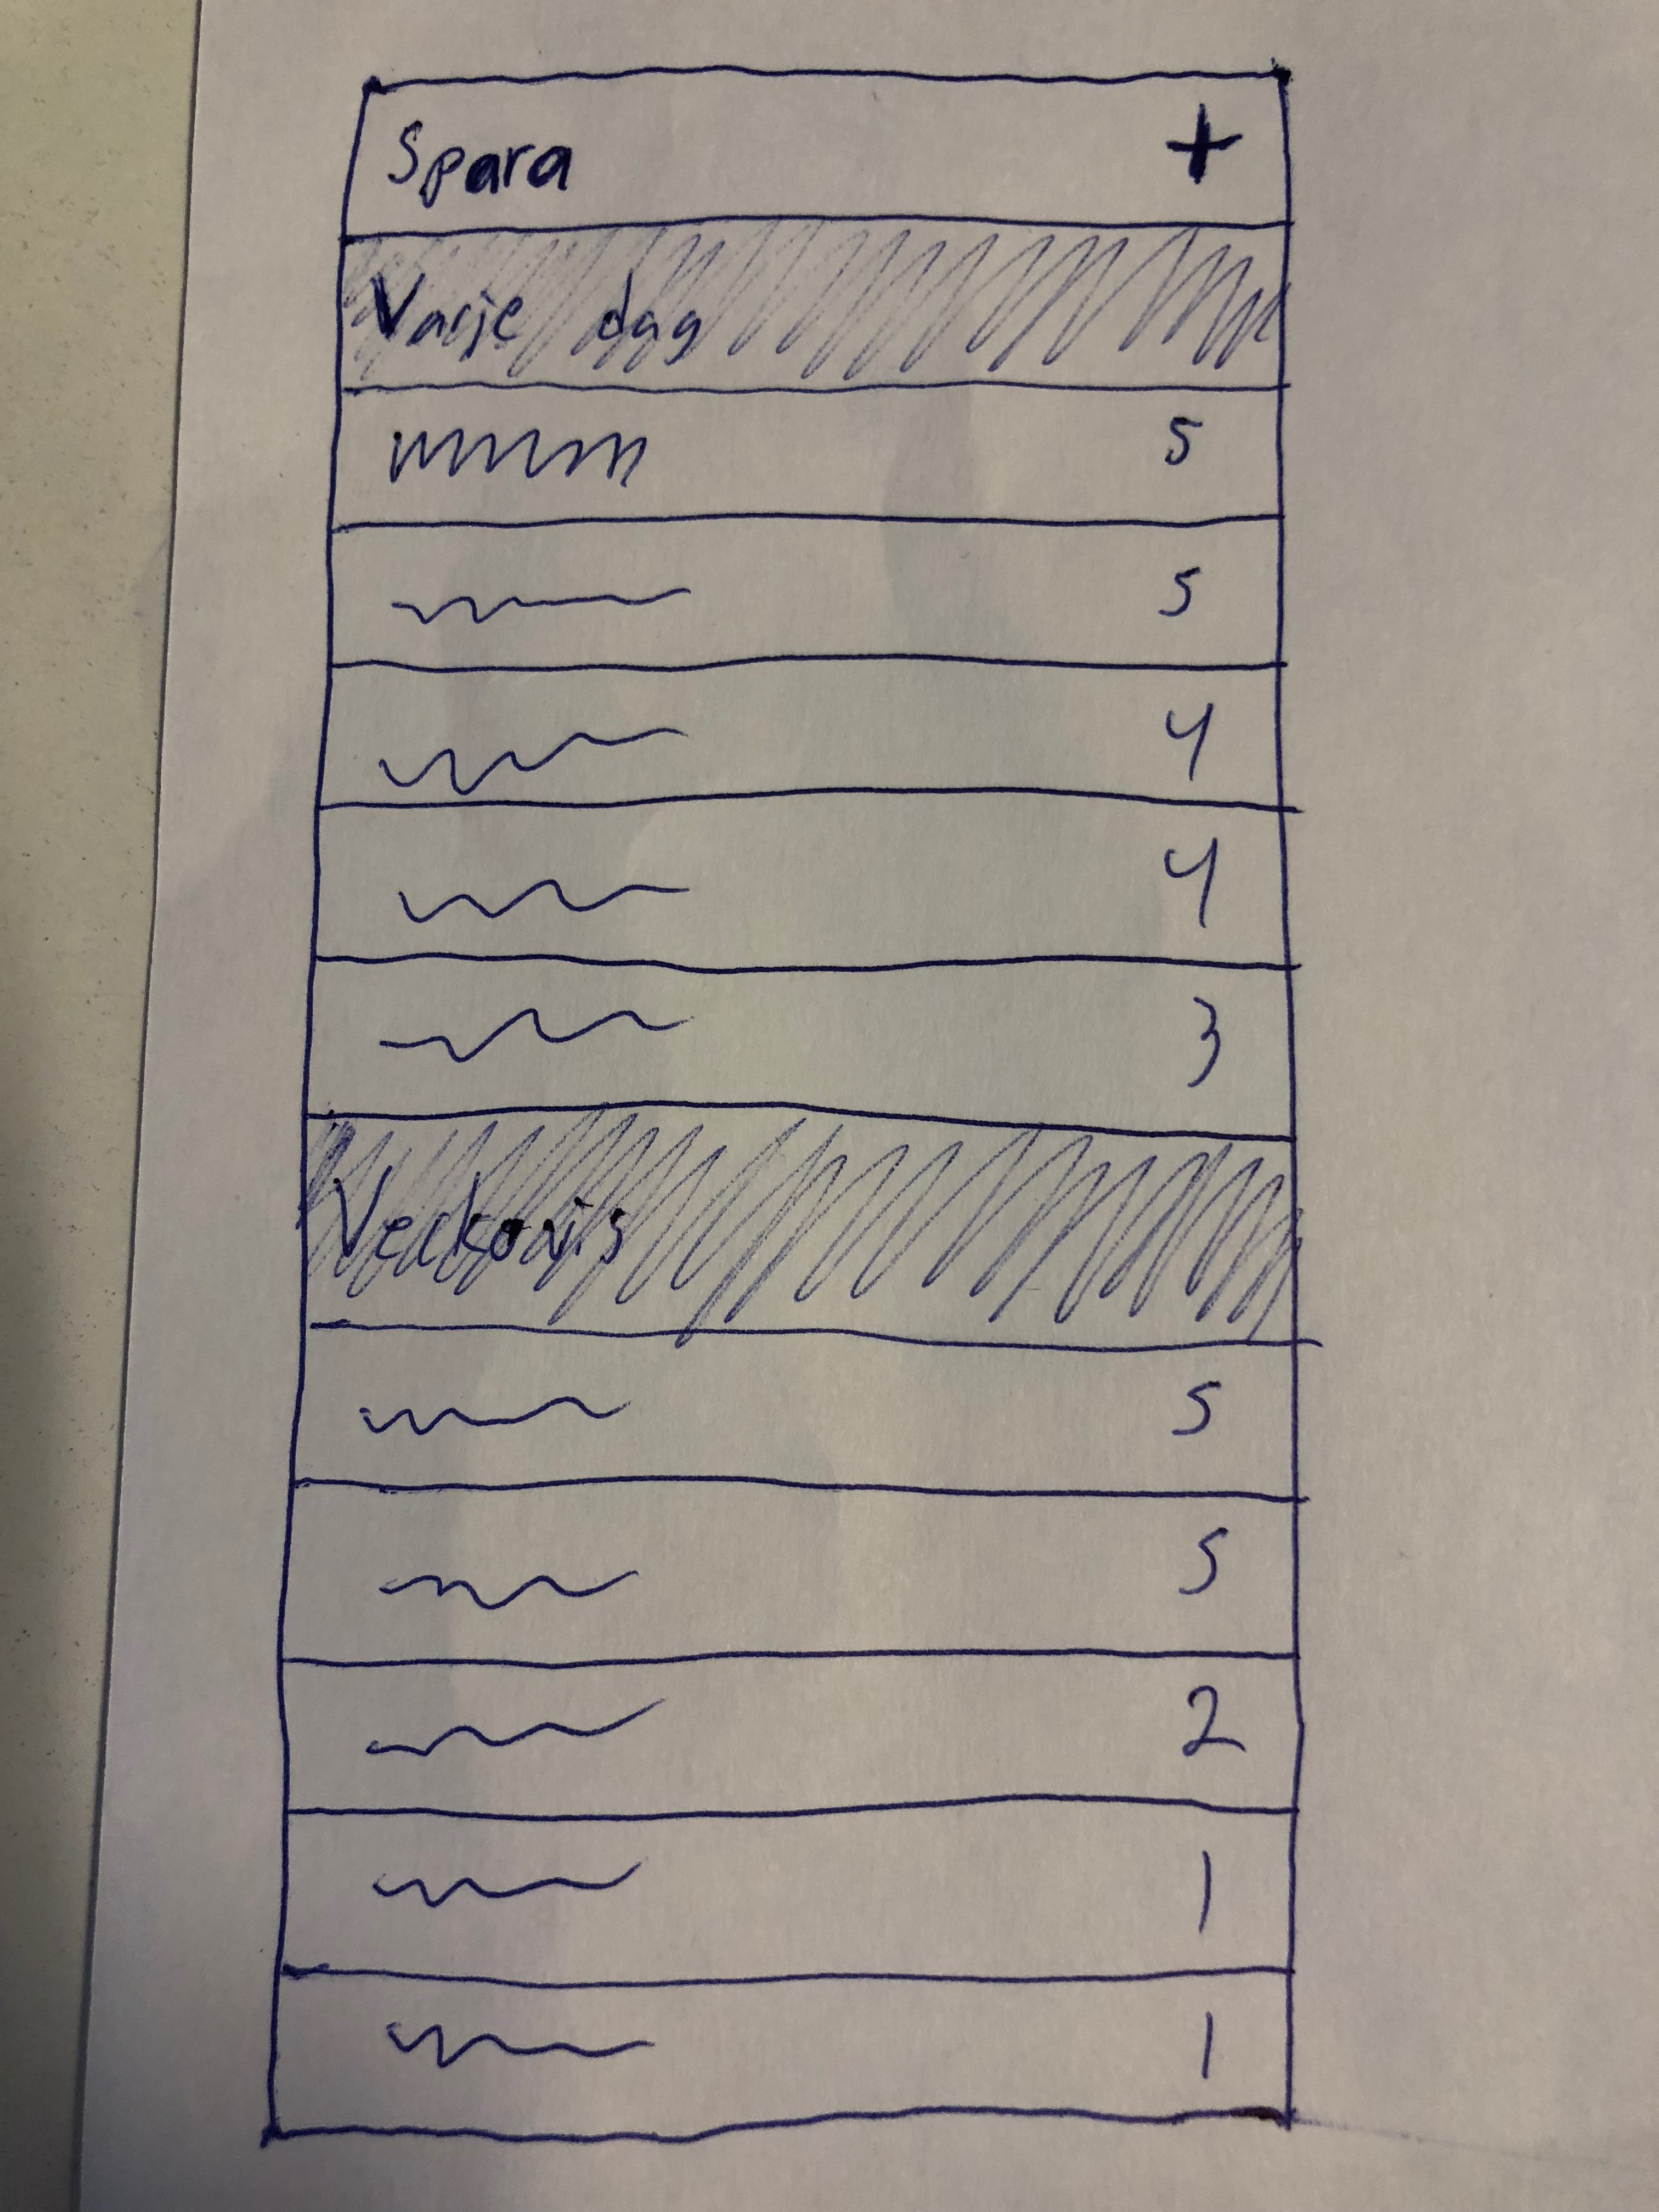 Spara +
Varje dag
5
5
4
4
3
Veckovis
5
5
2
1
1